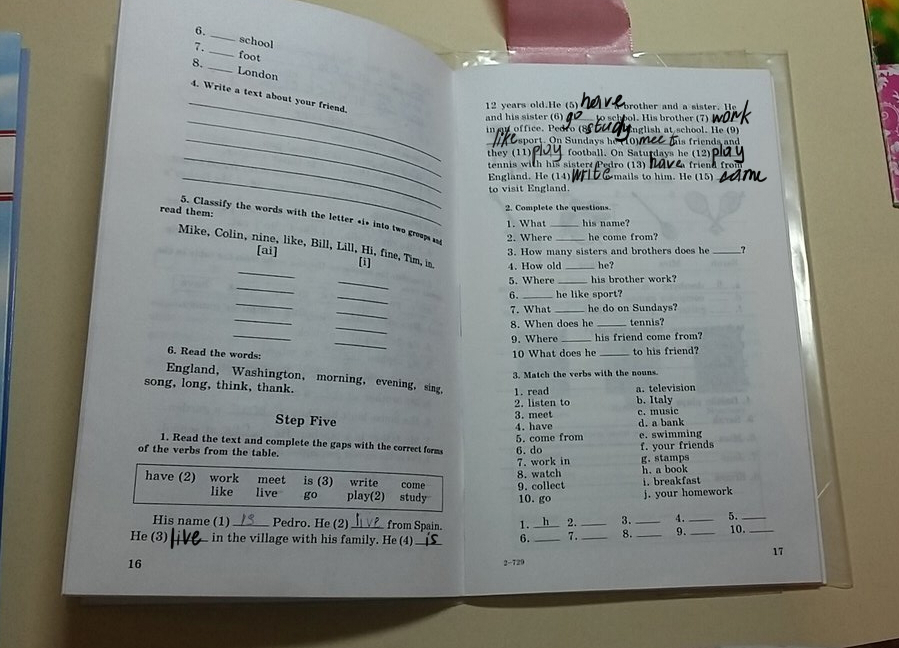 6. ____ school
7. ____ foot
8. ____ London
4. Write a text about your friend.
5. Classify the words with the letter «i» into two groups and
read them:
Mike, Colin, nine, like, Bill, Lill, Hi, fine, Tim, in.
[ai] [i]
6. Read the words:
England, Washington, morning, evening, sing,
song, long, think, thank.
Step Five
1. Read the text and complete the gaps with the correct forms
of the verbs from the table.
have (2) work meet is (3) write come
like live go play(2) study
His name (1) is Pedro. He (2) live from Spain.
He (3) live in the village with his family. He (4) is
16
12 years old.He (5) have brother and a sister. He
and his sister (6) go to school. His brother (7) work
in an office. Pedro (8) study English at school. He (9)
like sport. On Sundays he (10) meet his friends and
they (11) play football. On Saturdays he (12) play
tennis with his sister. Pedro (13) have friend from
England. He (14) write mails to him. He (15) came
to visit England.
2. Complete the questions.
1. What ____ his name?
2. Where ____ he come from?
3. How many sisters and brothers does he ____?
4. How old ____ he?
5. Where ____ his brother work?
6. ____ he like sport?
7. What ____ he do on Sundays?
8. When does he ____ tennis?
9. Where ____ his friend come from?
10 What does he ____ to his friend?
3. Match the verbs with the nouns.
1. read a. television
2. listen to b. Italy
3. meet c. music
4. have d. a bank
5. come from e. swimming
6. do f. your friends
7. work in g. stamps
8. watch h. a book
9. collect i. breakfast
10. go j. your homework
1. h 2. ____ 3. ____ 4. ____ 5. ____
6. ____ 7. ____ 8. ____ 9. ____ 10. ____
2-729
17